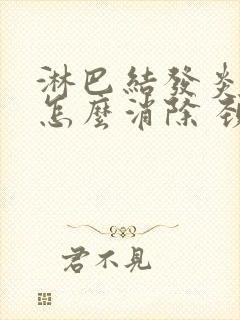 淋巴結發炎
怎麼消除 頸
君不見